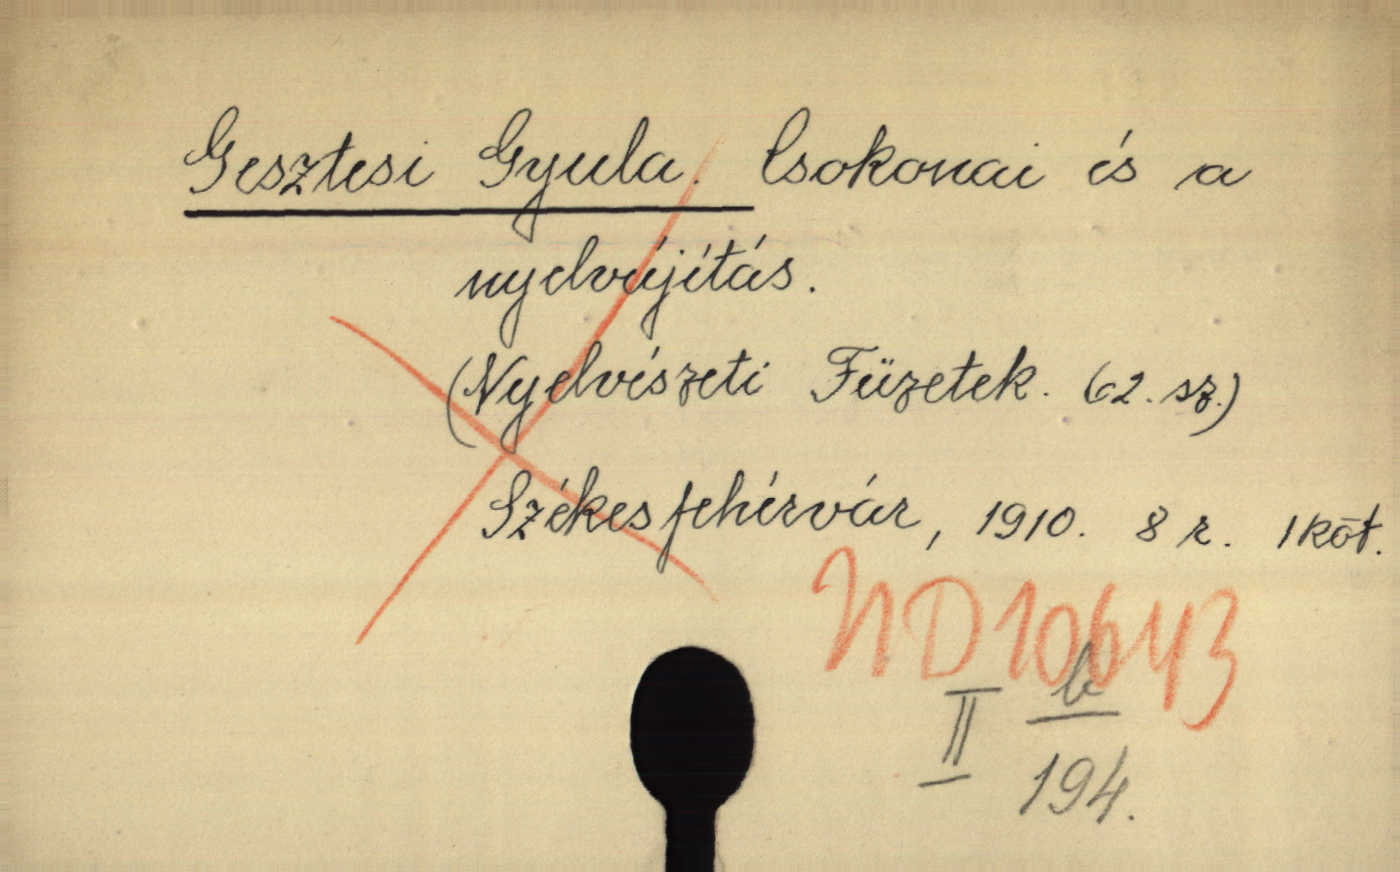 Gesztesi Gyula. Csokonai és a
nyelvújítás.
(Nyelvészeti Füzetek. 62. sz.)
Székesfehérvár, 1910. 8 r. 1 köt.
ND 10643
II b
194.